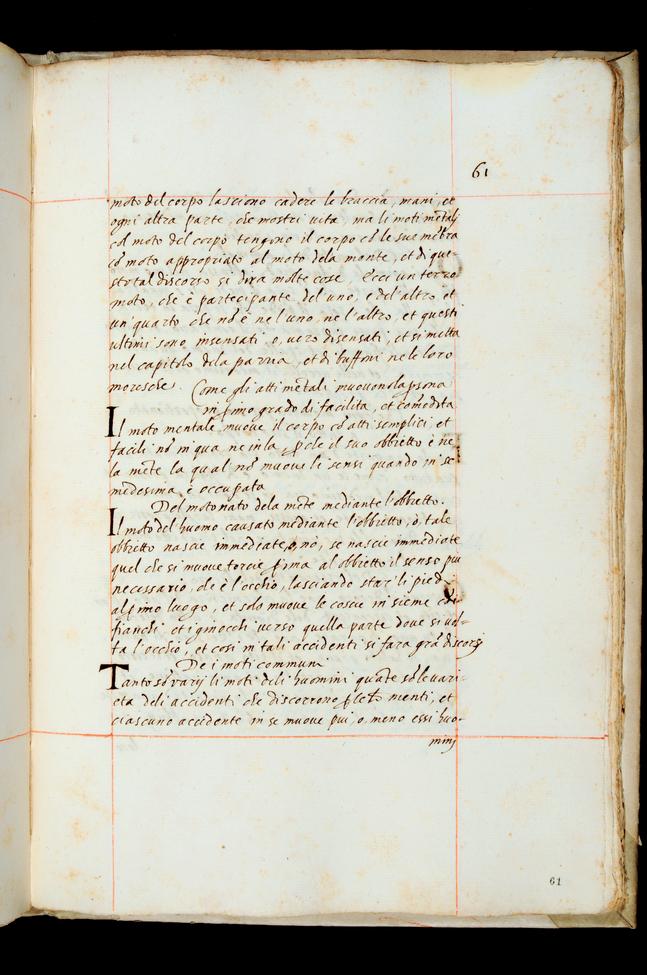 61
moto del corpo lasciono cadere le braccia, mani, et
ogni altra parte, che mostri uita, ma li moti mẽtali
col moto del corpo tengino il corpo cõ le sue mẽbra
cõ moto appropriato al moto dela mente, et di que-
sto tal discorso si dira molte cose. Ecci un terzo
moto, che è partecipante del uno, e del'altro, et
un quarto, che nõ è ne l'uno, ne l'altro, et questi
ultimi sono insensati, o, uero disensati, et si metta
nel capitolo dela pazzia, et di buffoni nele loro
moresche.
Come gli atti mẽtali muouono la psona
in pimo grado di facilita, et comodita
Il moto mentale muoue il corpo cõ atti semplici, et
facili nõ in qua ne in la, pche il suo obbietto è ne
la mẽte la qual nõ muoue li sensi quando in se
medesima è occupata
Del moto nato dela mẽte mediante l'obbietto.
Il moto del huomo causato mediante l'obbietto, ò, tale
obbietto nascie immediate, o, nò, se nascie immediate
quel che si muoue torcie pima al obbietto il senso piu
necessario, che è l'occhio, lasciando star li piedi
al pimo luogo, et solo muoue le coscie insieme co i
fianchi et i ginocchi uerso quella parte doue si uol-
ta l'occhio, et cosi in tali accidenti si fara grã discorsi
De i moti communi
Tanto sõ varij li moti deli huomini quãte sõ le uari-
eta deli accidenti che discorrono p le menti, et
ciascuno accidente in se muoue piu, o, meno essi huo-
mini
61